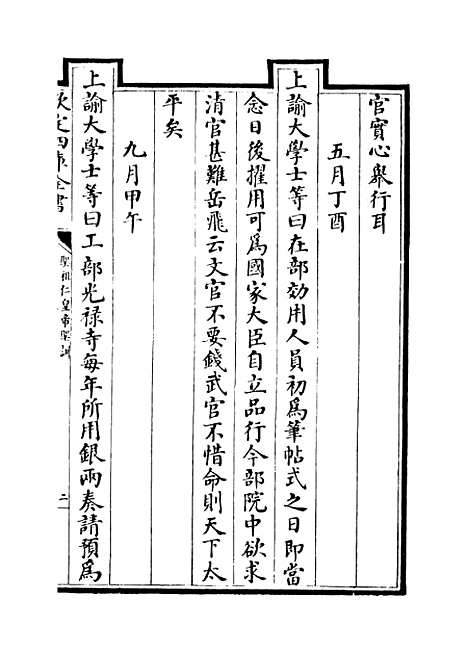 官實心舉行耳
五月丁酉
上諭大學士等曰在部効用人員初為筆帖式之日即當
念日後擢用可為國家大臣自立品行今部院中欲求
清官甚難岳飛云文官不要錢武官不惜命則天下太
平矣
九月甲午
上諭大學士等曰工部光禄寺每年所用銀兩奏請預為
欽定四庫全書
聖祖仁皇帝聖訓
二